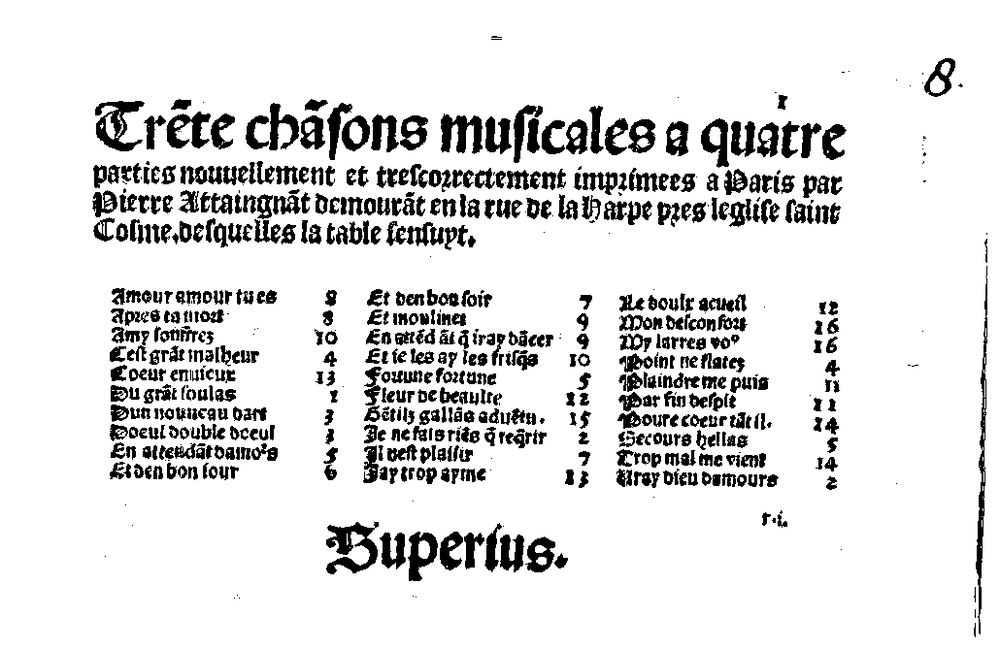 8.
1
Trēte chāſons muſicales a quatre
parties nouuellement et treſcorrectement imprimees a Paris par
Pierre Attaingnāt demourāt en la rue de la Harpe pres legliſe ſaint
Coſme, deſquelles la table ſenſuyt.
Amour amour tu es 8
Apres ta mort 8
Amy ſouffrez 10
Ceſt grāt malheur 4
Coeur enuieux 13
Du grāt ſoulas 1
Dun nouueau dart 3
Doeul double doeul 3
En attendāt damoᵘs 5
Et den bon ſour 6
Et den bon ſoir 7
Et moulinet 9
En attēd āt q̄ iray dācer 9
Et ie les ay les friſq̄s 10
Fortune fortune 5
Fleur de beaulte 12
Gētilz gallās aduētu. 15
Je ne fais riēs q̄ req̄rir 2
Il neſt plaiſir 7
Jay trop ayme 13
Le doulx acueil 12
Mon deſconfort 16
My larres voꝰ 16
Point ne flatez 4
Plaindre me puis 11
Par fin deſpit 11
Poure coeur tāt il. 14
Secours hellas 5
Trop mal me vient 14
Uray dieu damours 2
r.i.
Superius.